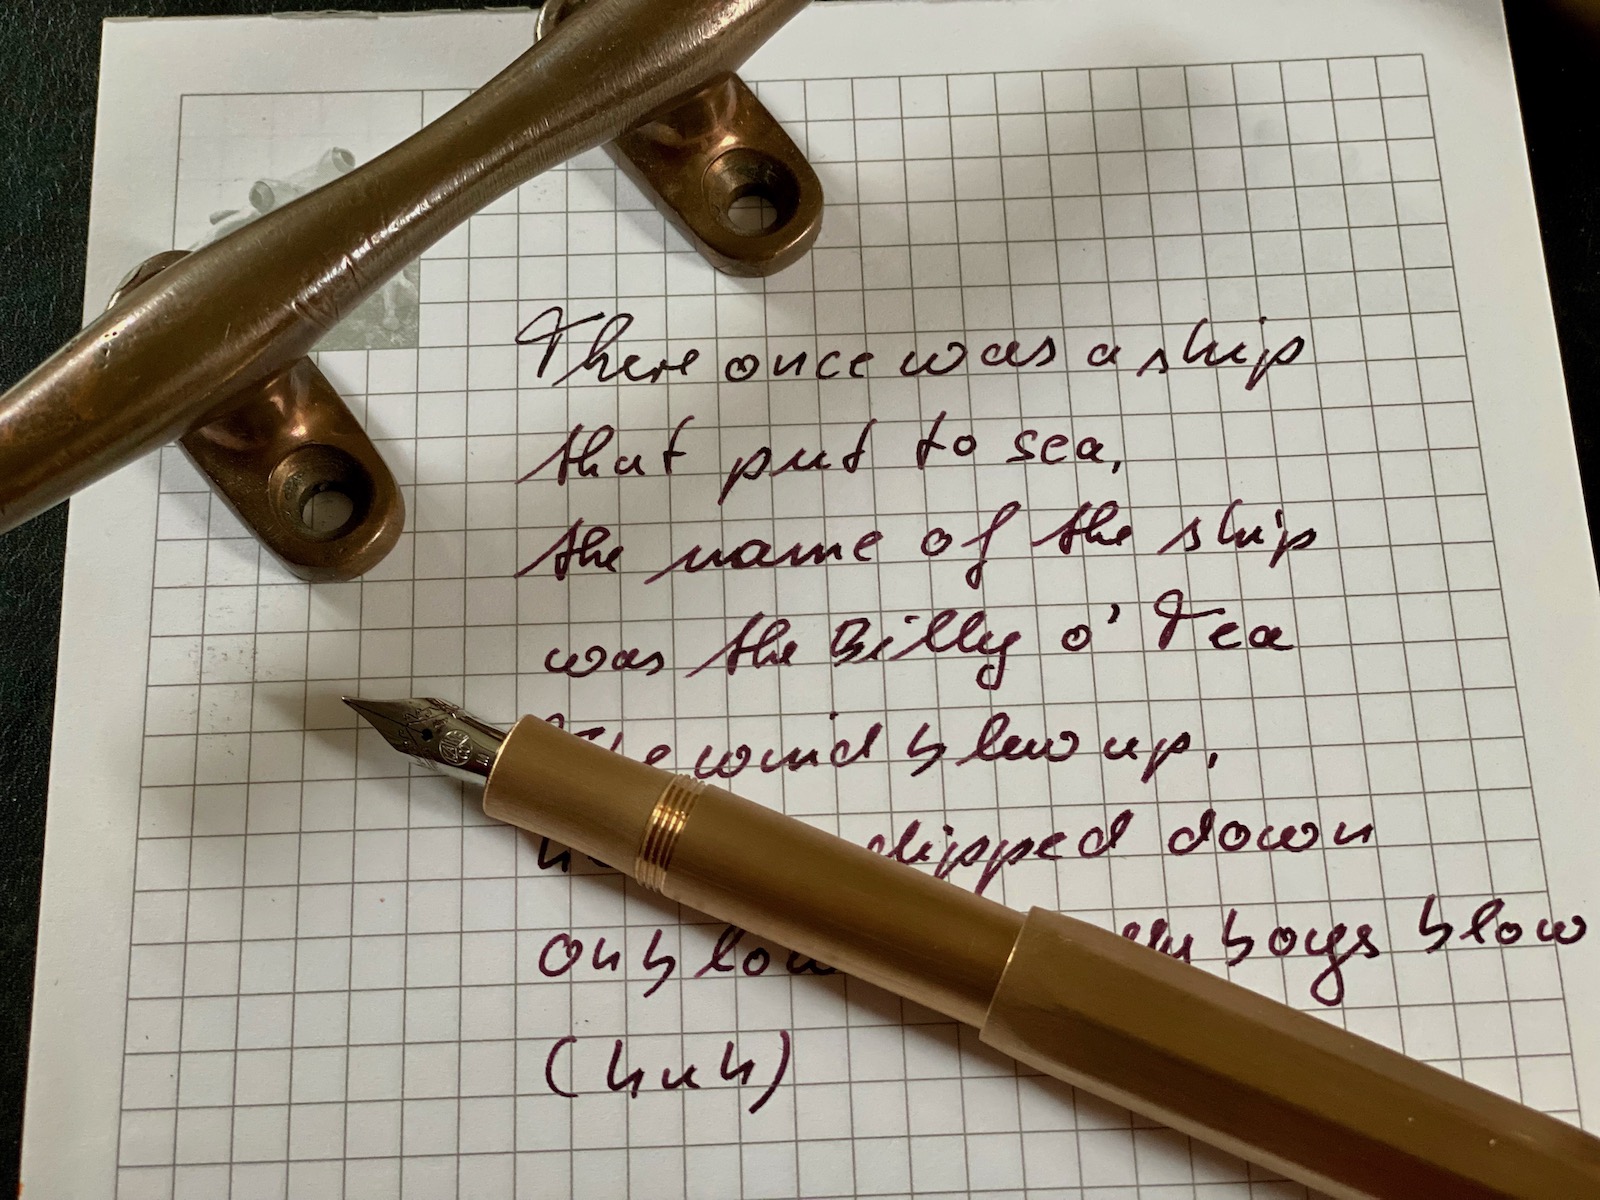 There once was a ship
that put to sea,
the name of the ship
was the Billy o' Tea
The wind blew up,
dipped down
Oh blow boys blow
(huh)